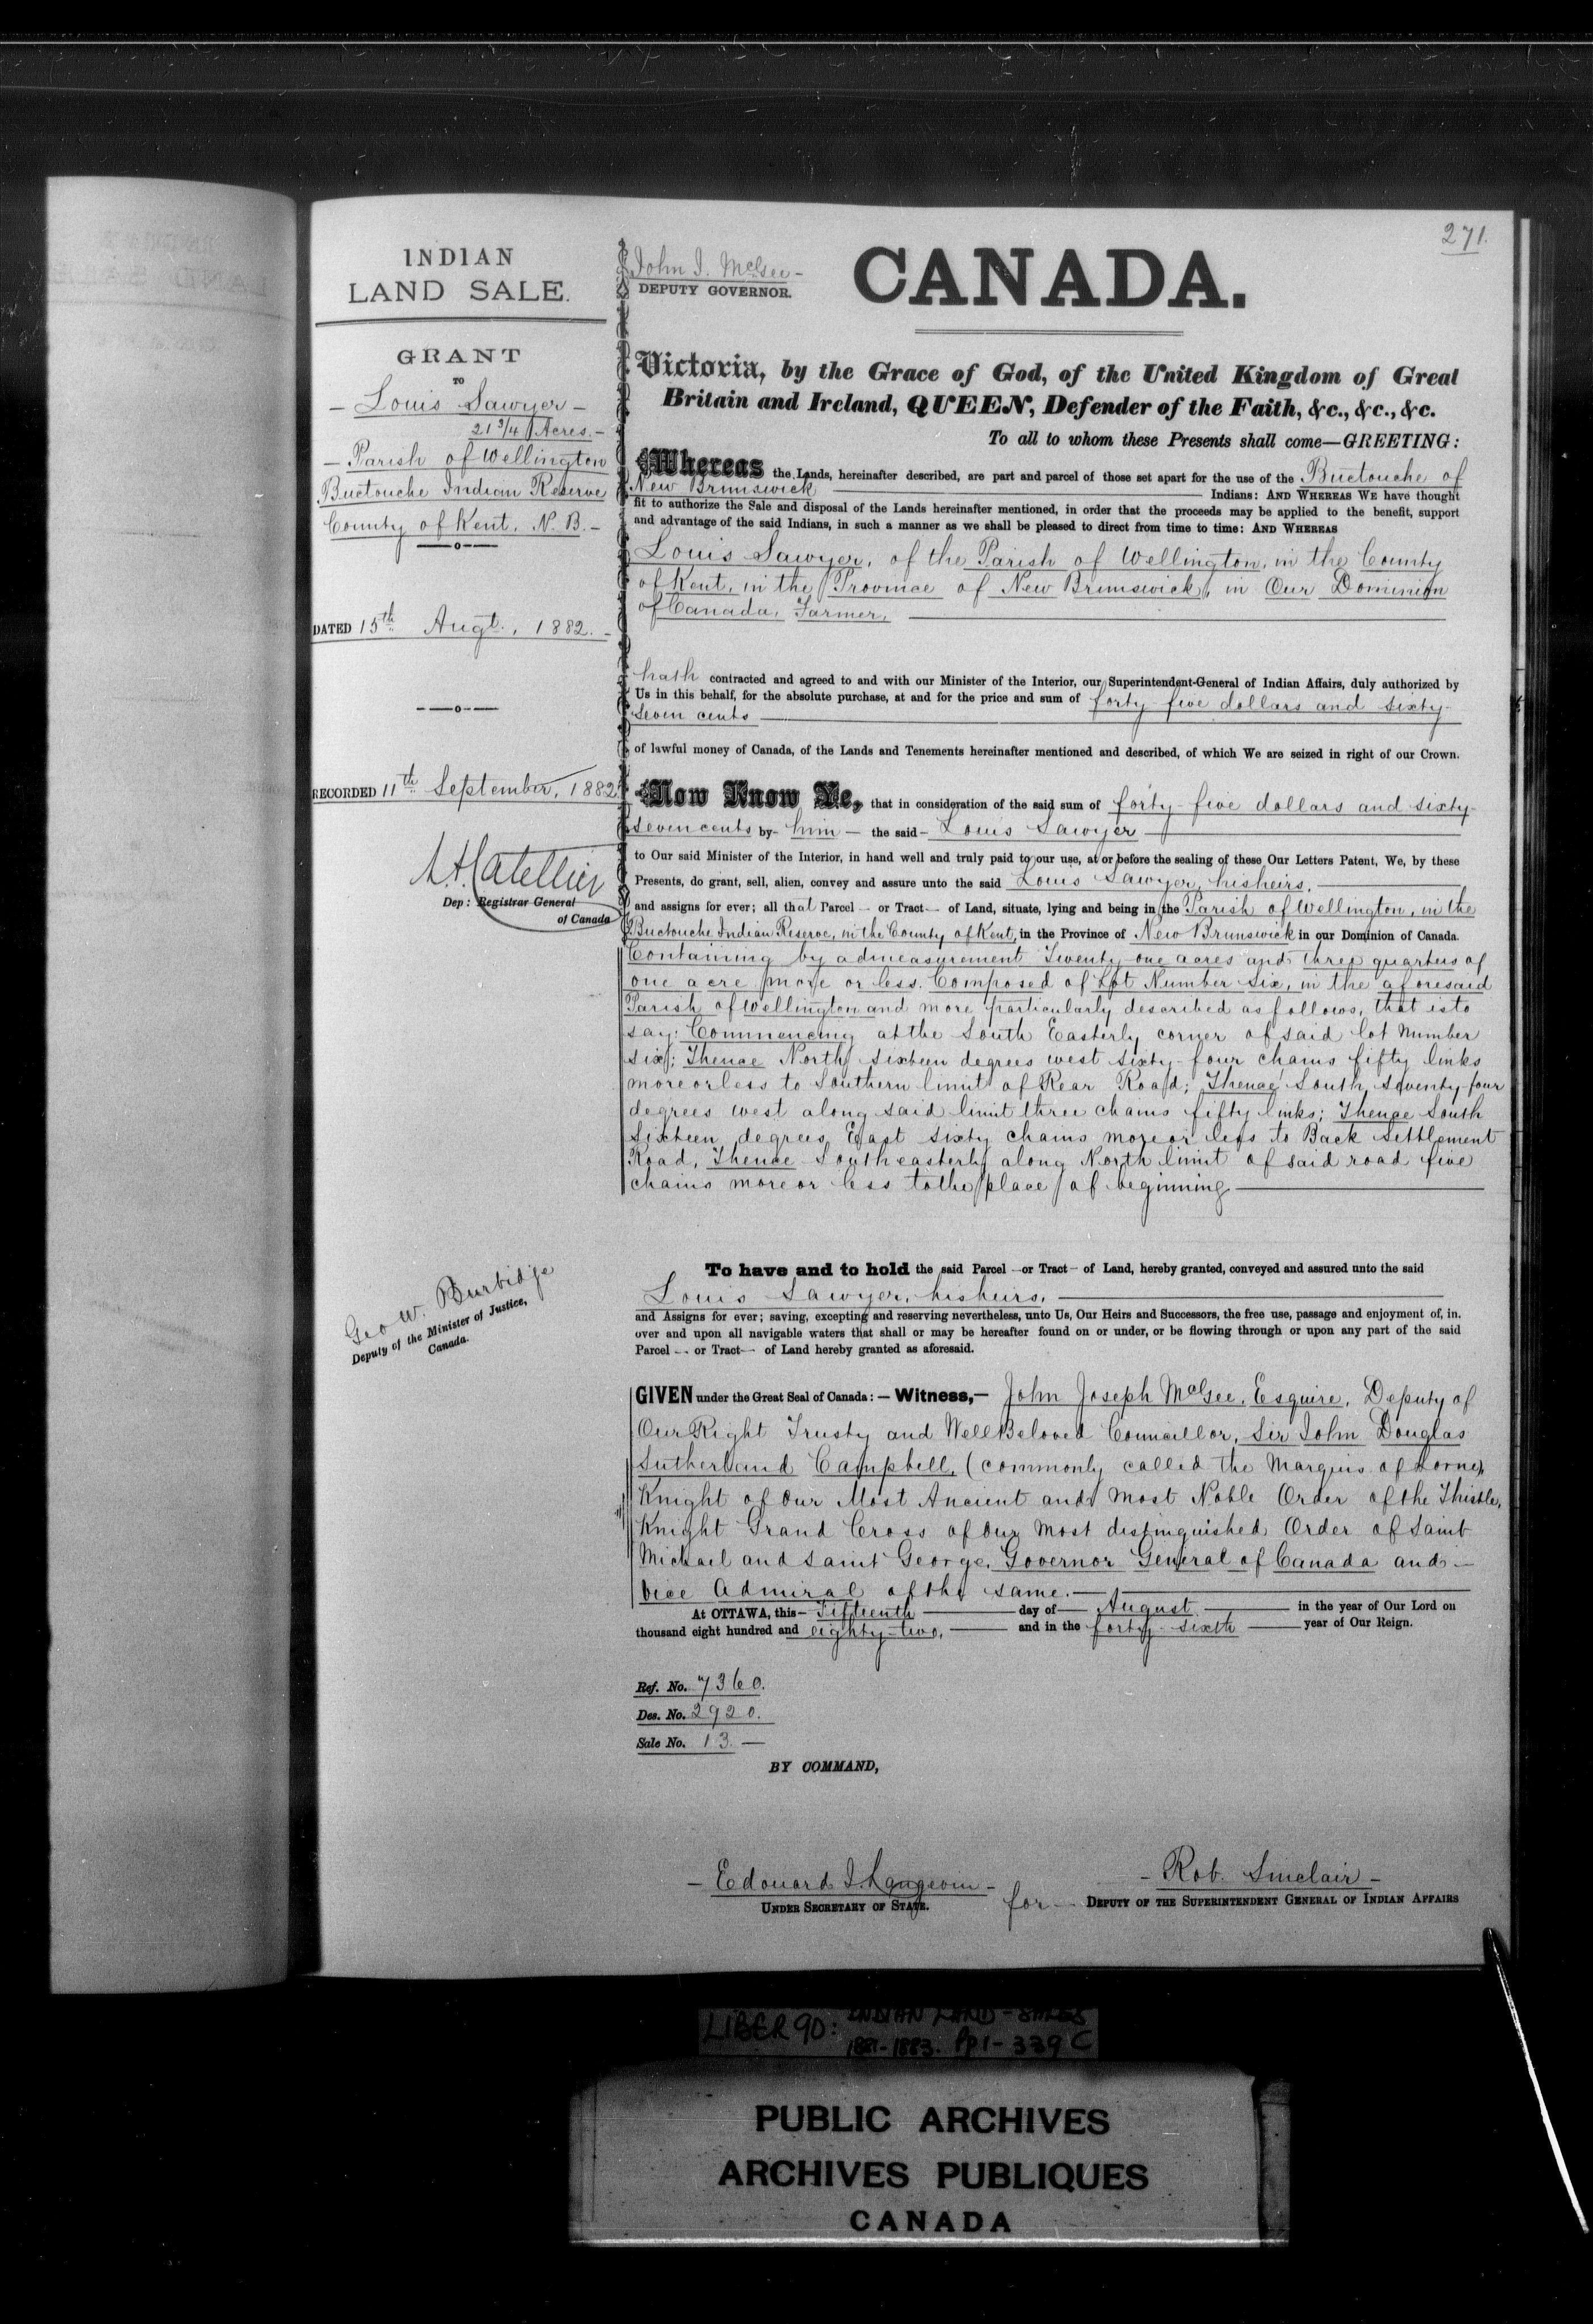 271.
INDIAN
LAND SALE.
GRANT
TO
— Louis Sawyer —
21 3/4 Acres. —
— Parish of Wellington
Buctouche Indian Reserve
County of Kent. N. B. —
—o—
DATED 15th Augt., 1882. —
—o—
RECORDED 11th September, 1882
Dep: Registrar General
of Canada
Geo W. Burbidge
Deputy of the Minister of Justice,
Canada.
John J. McGee —
DEPUTY GOVERNOR.
CANADA.
Victoria, by the Grace of God, of the United Kingdom of Great
Britain and Ireland, QUEEN, Defender of the Faith, &c., &c., &c.
To all to whom these Presents shall come—GREETING:
Whereas the Lands, hereinafter described, are part and parcel of those set apart for the use of the Buctouche of
New Brunswick Indians: AND WHEREAS WE have thought
fit to authorize the Sale and disposal of the Lands hereinafter mentioned, in order that the proceeds may be applied to the benefit, support
and advantage of the said Indians, in such a manner as we shall be pleased to direct from time to time: AND WHEREAS
Louis Sawyer, of the Parish of Wellington, in the County
of Kent, in the Province of New Brunswick, in Our Dominion
of Canada, Farmer,
hath contracted and agreed to and with our Minister of the Interior, our Superintendent-General of Indian Affairs, duly authorized by
Us in this behalf, for the absolute purchase, at and for the price and sum of forty-five dollars and sixty-
seven cents
of lawful money of Canada, of the Lands and Tenements hereinafter mentioned and described, of which We are seized in right of our Crown.
Now Know Ye, that in consideration of the said sum of forty-five dollars and sixty-
seven cents by- him — the said- Louis Sawyer
to Our said Minister of the Interior, in hand well and truly paid to our use, at or before the sealing of these Our Letters Patent, We, by these
Presents, do grant, sell, alien, convey and assure unto the said Louis Sawyer, his heirs,
and assigns for ever; all that Parcel — or Tract — of Land, situate, lying and being in the Parish of Wellington, in the
Buctouche Indian Reserve, in the County of Kent, in the Province of New Brunswick in our Dominion of Canada.
Containing by admeasurement Twenty one acres and three quarters of
one acre more or less. Composed of Lot Number Six, in the aforesaid
Parish of Wellington and more particularly described as follows, that is to
say: Commencing at the South Easterly corner of said lot Number
Six; Thence North sixteen degrees west sixty-four chains fifty links
more or less to Southern limit of Rear Road; Thence South seventy-four
degrees west along said limit three chains fifty links; Thence South
Sixteen degrees East sixty chains more or less to Back Settlement
Road, Thence South easterly along North limit of said road five
chains more or less to the place of beginning
To have and to hold the said Parcel — or Tract — of Land, hereby granted, conveyed and assured unto the said
Louis Sawyer, his heirs,
and Assigns for ever; saving, excepting and reserving nevertheless, unto Us, Our Heirs and Successors, the free use, passage and enjoyment of, in,
over and upon all navigable waters that shall or may be hereafter found on or under, or be flowing through or upon any part of the said
Parcel — or Tract — of Land hereby granted as aforesaid.
GIVEN under the Great Seal of Canada: — Witness, — John Joseph McGee, Esquire, Deputy of
Our Right Trusty and Well Beloved Councillor, Sir John Douglas
Sutherland Campbell, (commonly called the Marquis of Lorne),
Knight of Our Most Ancient and Most Noble Order of the Thistle,
Knight Grand Cross of Our Most distinguished Order of Saint
Michael and Saint George, Governor General of Canada and —
Vice Admiral of the same. —
At OTTAWA, this — Fifteenth — day of — August — in the year of Our Lord on
thousand eight hundred and eighty-two, — and in the forty-sixth — year of Our Reign.
Ref. No. 7360.
Des. No. 2920.
Sale No. 13. —
BY COMMAND,
— Edouard J. Langevin —
UNDER SECRETARY OF STATE.
— Rob. Sinclair —
for — DEPUTY OF THE SUPERINTENDENT GENERAL OF INDIAN AFFAIRS
LIBER 90: INDIAN LAND - SALES
1881-1883. Pp 1-339 C
PUBLIC ARCHIVES
ARCHIVES PUBLIQUES
CANADA